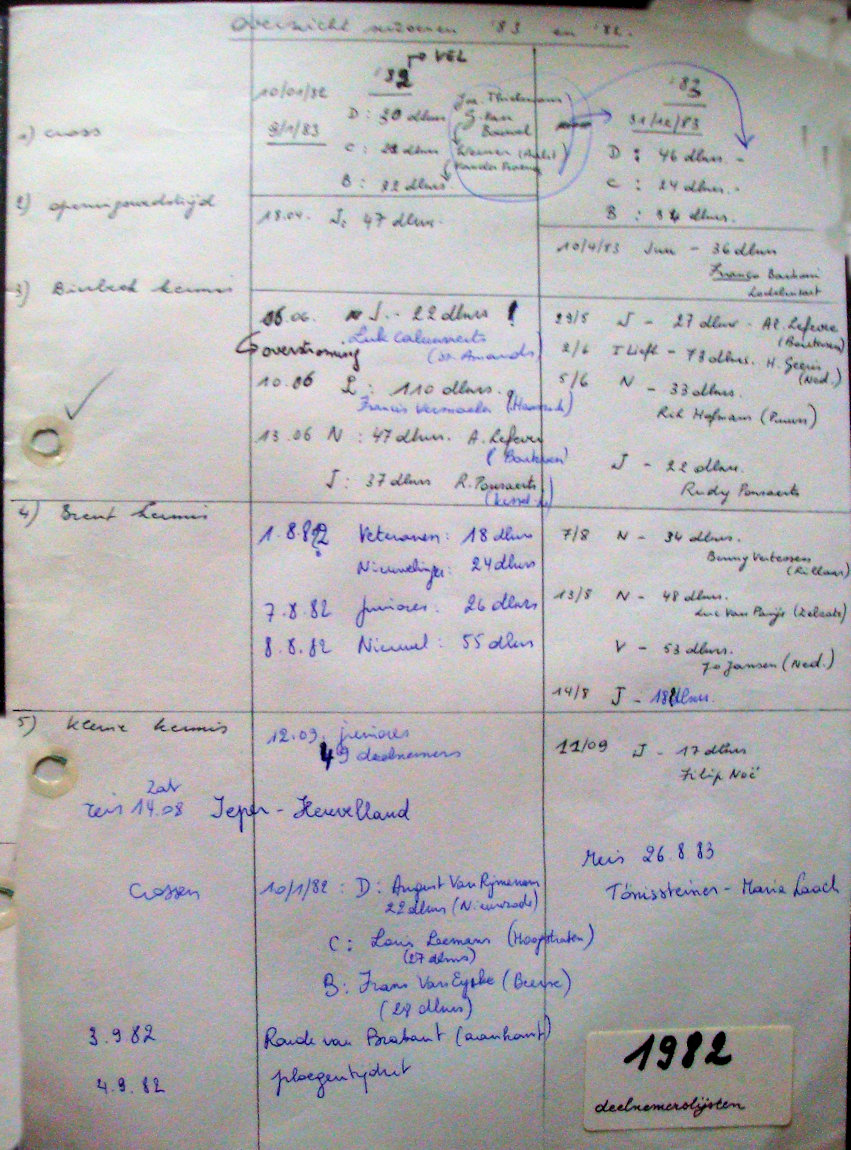 Overzicht seizoenen '83 en '82.
'82 → VEL
'83
1) cross
10/01/82
9/1/83
D : 30 dlnrs
C : dlnrs
B : 32 dlnrs
Jos. Thielemans
G. Van
Werner
Vander
31/12/83
D : 46 dlnrs.
C : 24 dlnrs.
B : 34 dlnrs.
2) openingswedstrijd
18.04. J: 47 dlnrs.
10/4/83 Jun - 36 dlnrs
3) Bierbeek kermis
06.06. J. - 22 dlnrs !
Luk
(St. Amands)
Goverstroming
10.06 L : 110 dlnrs.
Francis Vermaelen
13.06 N : 47 dlnrs. A. Lefevre
J : 37 dlnrs R. Ponsaerts
(Kessel-lo)
29/5 J - 27 dlnrs - Al. Lefevre
2/6 T Liefh - 73 dlnrs. H. Geeris
(Ned.)
5/6 N - 33 dlnrs.
Rik Hofmans
J - 22 dlnrs.
Rudy Ponsaerts
4) kermis
1.8.82 Veteranen : 18 dlnrs
Nieuwelingen : 24 dlnrs
7.8.82 juniores : 26 dlnrs
8.8.82 Nieuwel : 55 dlnrs
7/8 N - 34 dlnrs.
Benny Vertessen
(Rillaar)
13/8 N - 48 dlnrs.
Luc Van Parijs (Zelzate)
V - 53 dlnrs.
Jo Jansen (Ned.)
14/8 J - 18 dlnrs.
5) kleine kermis
12.09. juniores
49 deelnemers
11/09 J - 17 dlnrs
Filip Noë
Zat
reis 14.08 Ieper - Heuvelland
reis 26.8.83
Tönissteiner - Maria Laach
Crossen
10/1/82 : D : August Van Rijmenam
22 dlnrs (Nieuwrode)
C : Louis Leemans (Hoogstraten)
(27 dlnrs)
B : Frans Van Eyken (Beerse)
(28 dlnrs)
3.9.82 Ronde van Brabant (aankomst)
4.9.82 ploegentijdrit
1982
deelnemerslijsten